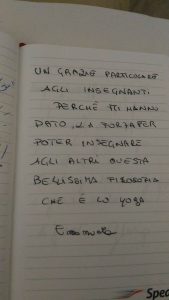 UN GRAZIE PARTICOLARE
AGLI INSEGNANTI
PERCHÉ MI HANNO
DATO LA FORZA PER
POTER INSEGNARE
AGLI ALTRI QUESTA
BELLISSIMA FILOSOFIA
CHE È LO YOGA
Spec